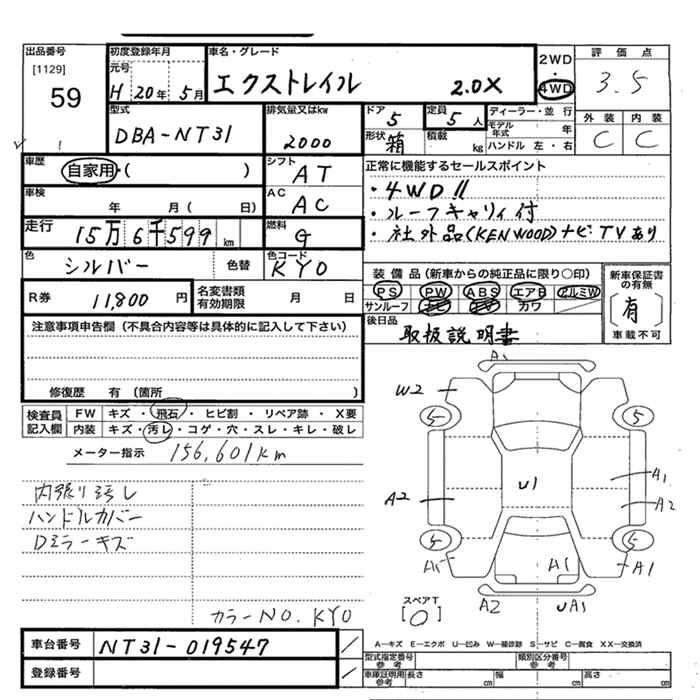 出品番号
[1129]
59
初度登録年月
元号
H 20年 5月
車名・グレード
エクストレイル 2.0X
2WD
・
4WD
評価点
3.5
型式
DBA-NT31
排気量又はkw
2000
ドア 5
形状 箱
定員 5人
積載 kg
ディーラー・並行
モデル年式 年
ハンドル 左・右
外装 内装
C C
車歴 自家用・( )
シフト AT
車検 年 月( 日)
AC AC
正常に機能するセールスポイント
・4WD!!
・ルーフキャリィ付
・社外品(KENWOOD)ナビTVあり
走行 15万6千599km
燃料 G
色 シルバー 色替
色コード KY0
装備品(新車からの純正品に限り○印)
PS PW ABS エアB アルミW
サンルーフ ナビ TV カワ
新車保証書の有無
[有]
車載不可
R券 11,800円
名変書類有効期限 月 日
後日品 取扱説明書
注意事項申告欄(不具合内容等は具体的に記入して下さい)
修復歴 有(箇所 )
検査員記入欄
FW キズ・飛石・ヒビ割・リペア跡・X要
内装 キズ・汚レ・コゲ・穴・スレ・キレ・破レ
メーター指示 156,601km
内張り汚レ
ハンドルカバー
Dミラーキズ
カラーNO. KY0
A1
W2
5 5
U1
A1
A2 A2
5 5
A1 A1 A1
A2 UA1
スペアT
[0]
A―キズ E―エクボ U―凹み W―補修跡 S―サビ C―腐食 XX―交換済
車台番号 NT31-019547
登録番号
型式指定番号参考
類別区分番号参考
車庫証明用参考 長さ cm 幅 cm 高さ cm